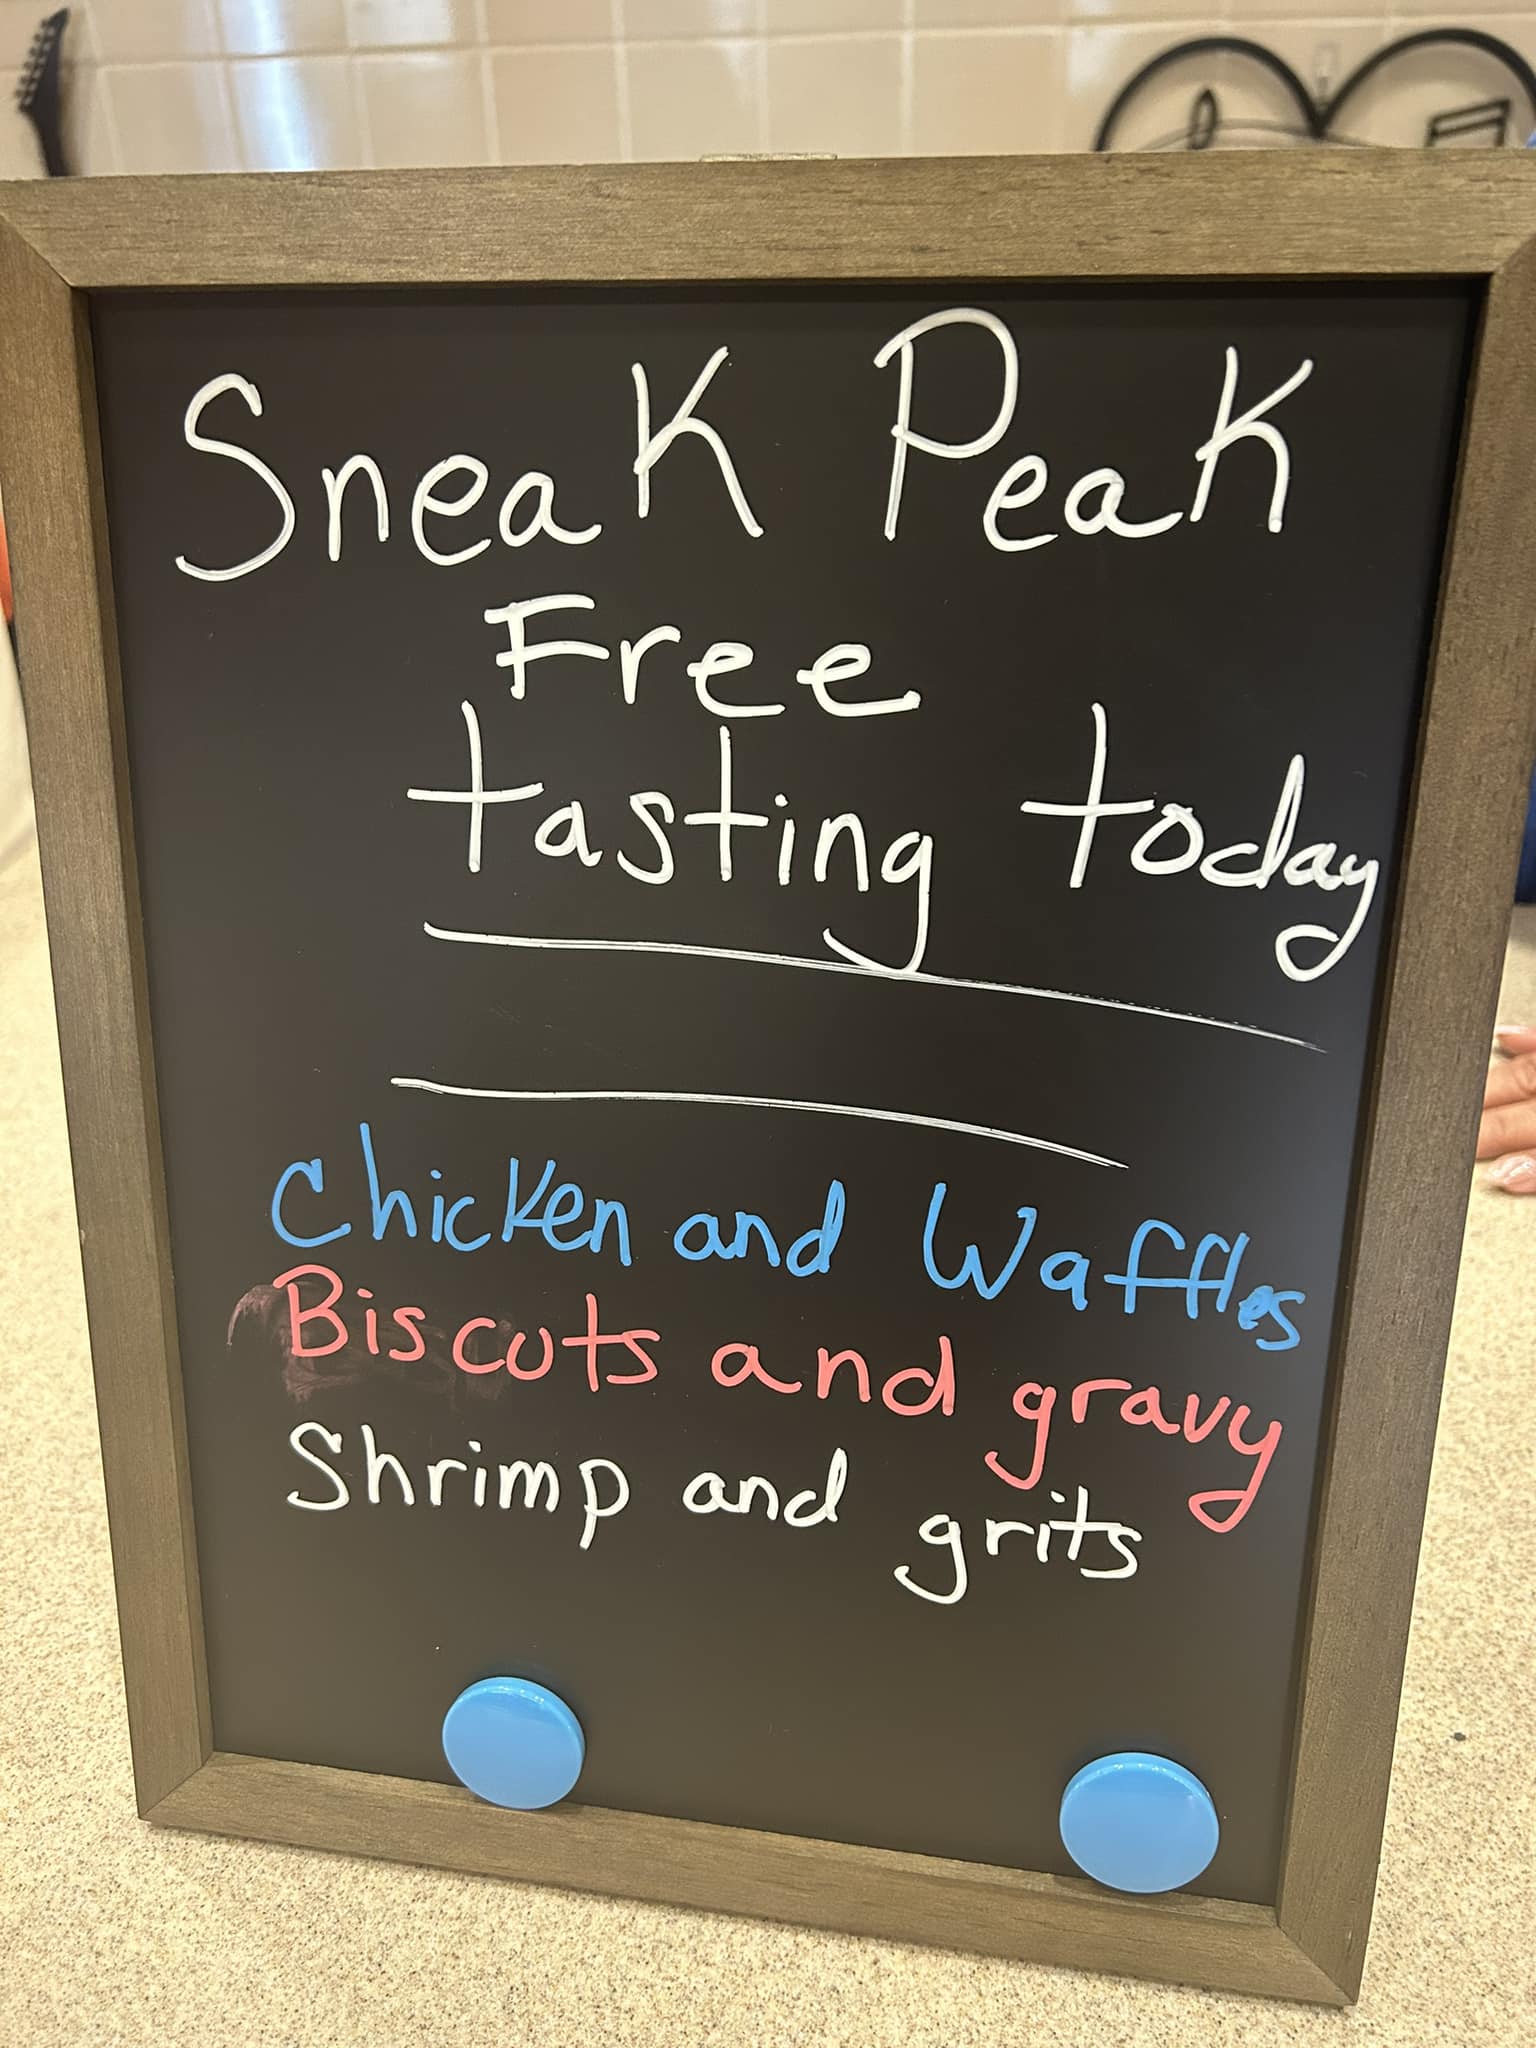 Sneak Peak
Free
tasting today
Chicken and Waffles
Biscuts and gravy
Shrimp and grits